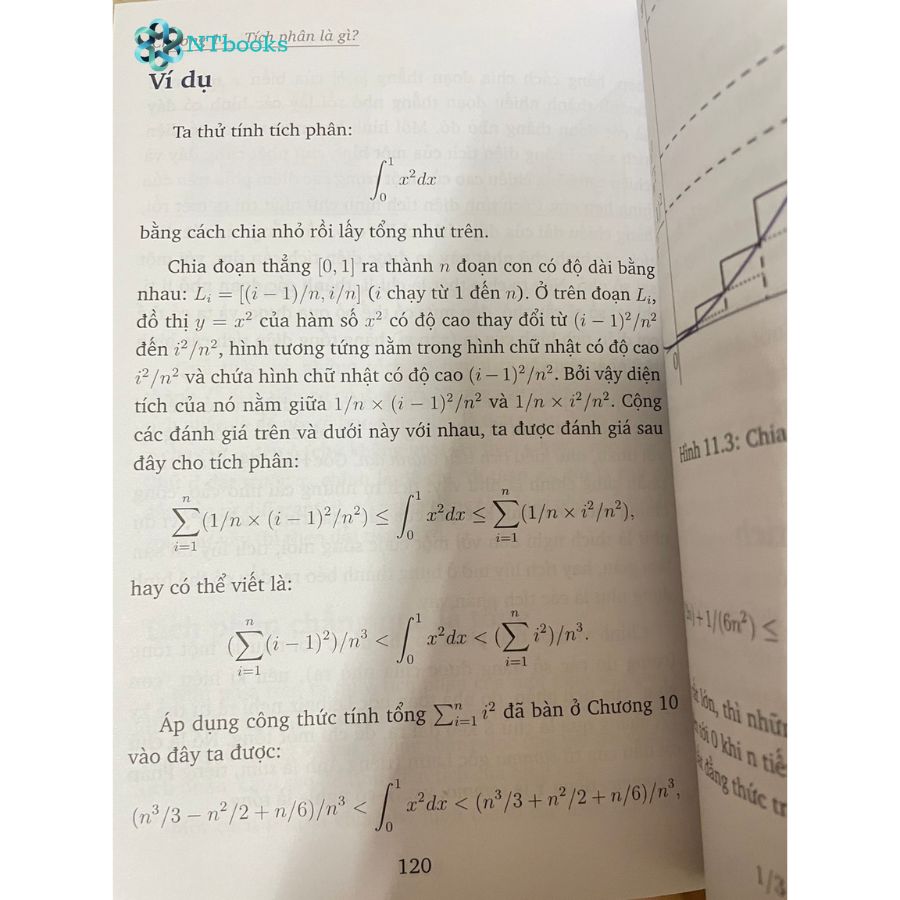 NTbooks
Tích phân là gì?
Ví dụ
Ta thử tính tích phân:
∫₀¹ x²dx
bằng cách chia nhỏ rồi lấy tổng như trên.
Chia đoạn thẳng [0, 1] ra thành n đoạn con có độ dài bằng
nhau: Lᵢ = [(i − 1)/n, i/n] (i chạy từ 1 đến n). Ở trên đoạn Lᵢ,
đồ thị y = x² của hàm số x² có độ cao thay đổi từ (i − 1)²/n²
đến i²/n², hình tương tứng nằm trong hình chữ nhật có độ cao
i²/n² và chứa hình chữ nhật có độ cao (i − 1)²/n². Bởi vậy diện
tích của nó nằm giữa 1/n × (i − 1)²/n² và 1/n × i²/n². Cộng
các đánh giá trên và dưới này với nhau, ta được đánh giá sau
đây cho tích phân:
∑ᵢ₌₁ⁿ (1/n × (i − 1)²/n²) ≤ ∫₀¹ x²dx ≤ ∑ᵢ₌₁ⁿ (1/n × i²/n²),
hay có thể viết là:
(∑ᵢ₌₁ⁿ (i − 1)²)/n³ < ∫₀¹ x²dx < (∑ᵢ₌₁ⁿ i²)/n³.
Áp dụng công thức tính tổng ∑ᵢ₌₁ⁿ i² đã bàn ở Chương 10
vào đây ta được:
(n³/3 − n²/2 + n/6)/n³ < ∫₀¹ x²dx < (n³/3 + n²/2 + n/6)/n³,
120
0
Hình 11.3: Chia
+ 1/(6n²) ≤
lớn, thì những
tới 0 khi n tiế
đẳng thức tr
1/3